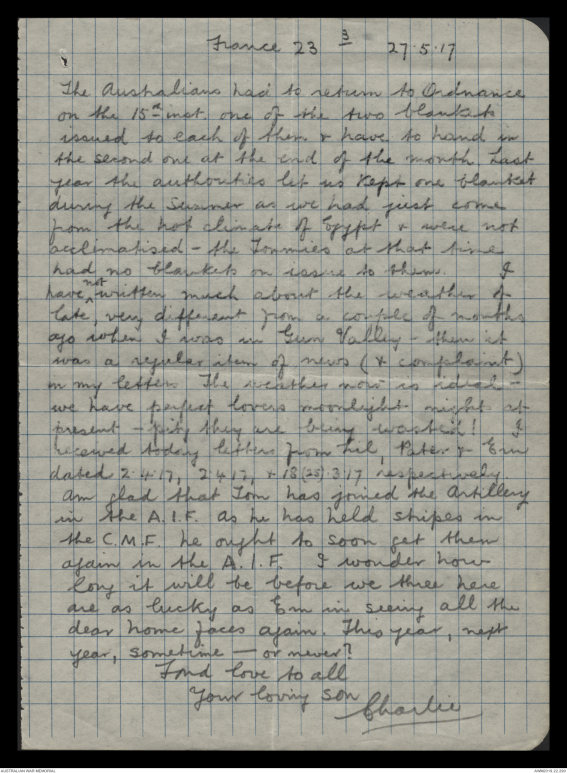 France 23 3 27·5·17
The Australians had to return to Ordnance
on the 15th inst. one of the two blankets
issued to each of them & have to hand in
the second one at the end of the month. Last
year the authorities let us kept one blanket
during the Summer as we had just come
from the hot climate of Egypt & were not
acclimatised - the Tommies at that time
had no blankets on issue to them. I
have not written much about the weather of
late, very different from a couple of months
ago when I was in Gun Valley - then it
was a regular item of news (& complaint)
in my letters. The weather now is ideal -
we have perfect lovers moonlight nights at
present - pity they are being wasted! I
received today letters from Lil, Pater & Ern
dated 2·4·17, 2·4·17, & 18(25)·3·17 respectively
Am glad that Tom has joined the Artillery
in the A.I.F. As he has held stripes in
the C.M.F. he ought to soon get them
again in the A.I.F. I wonder how
long it will be before we three here
are as lucky as Ern in seeing all the
dear home faces again. This year, next
year, sometime — or never?
Fond love to all
Your loving son
Charlie
AUSTRALIAN WAR MEMORIAL